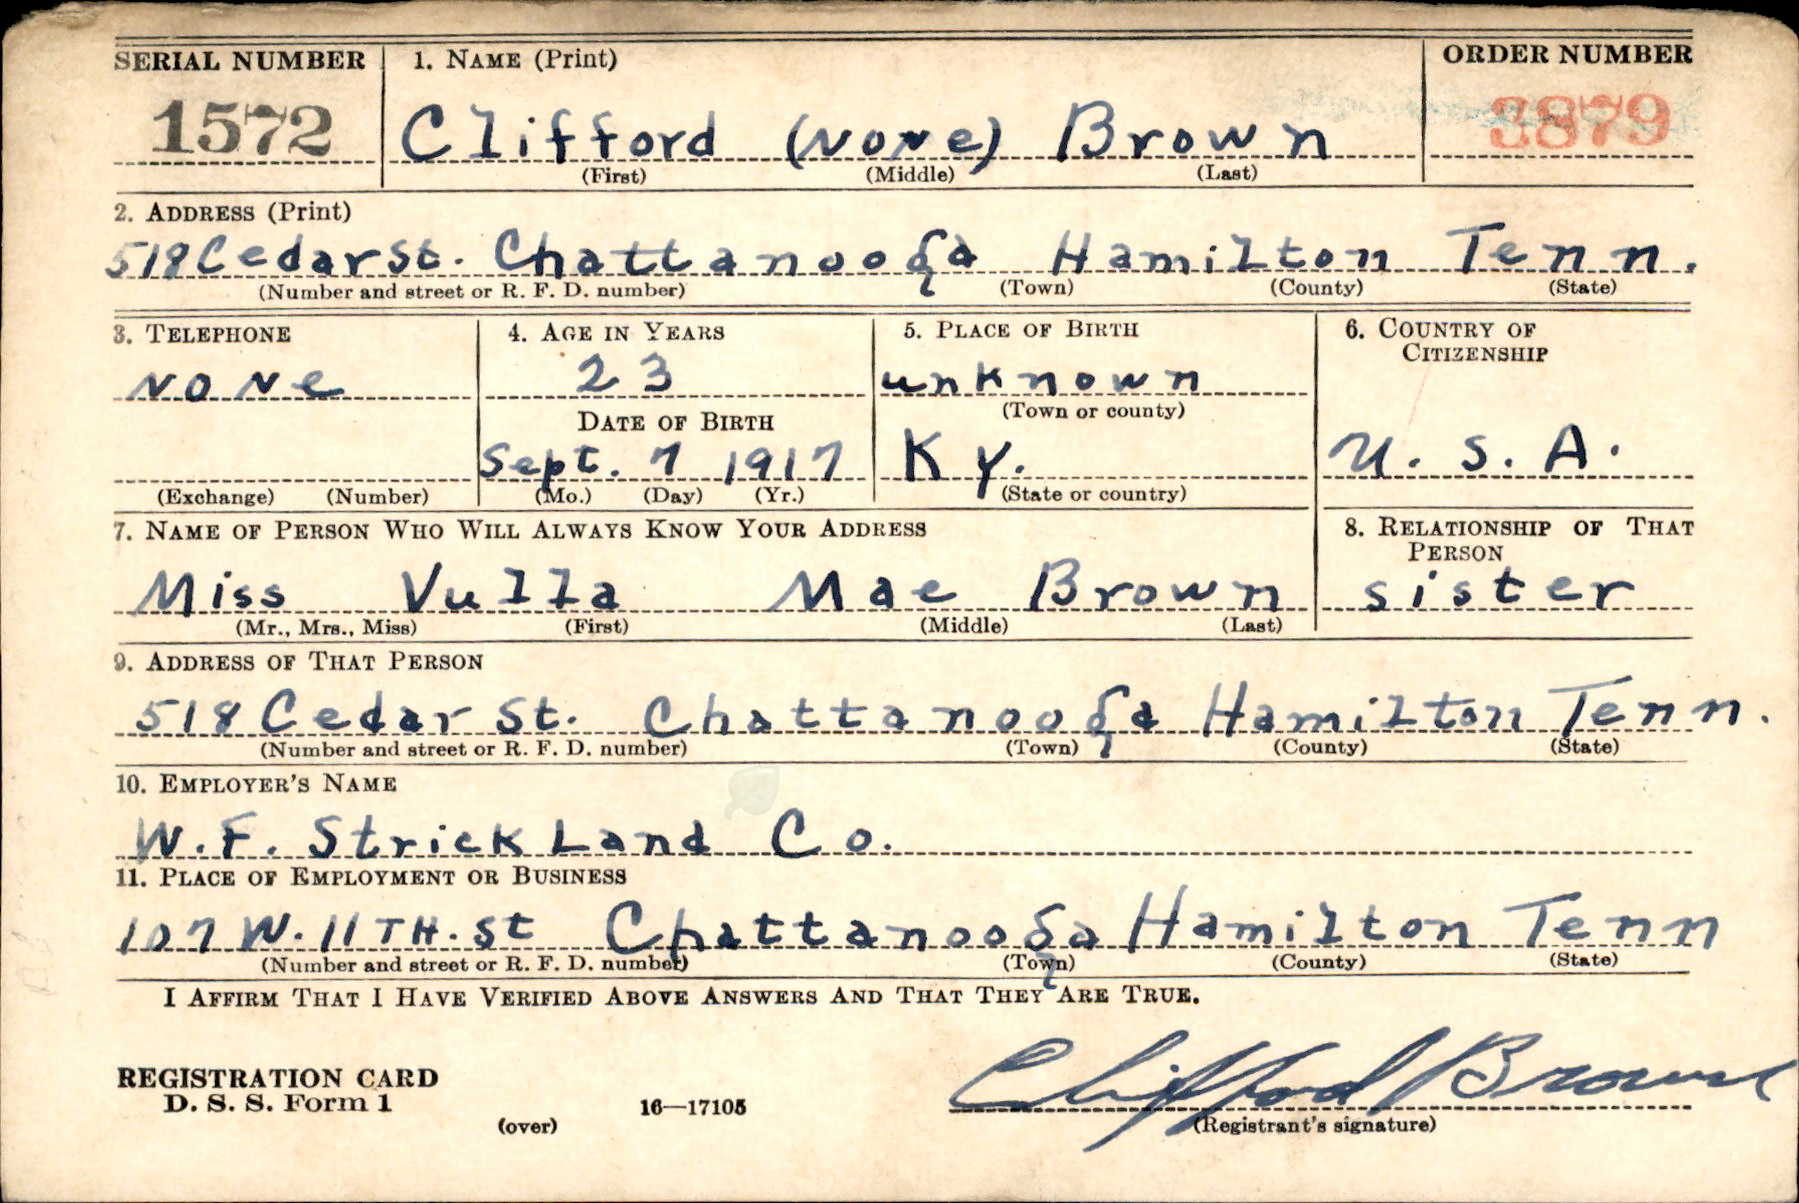 SERIAL NUMBER 1. NAME (Print) ORDER NUMBER
1572 Clifford (None) Brown 3879
(First) (Middle) (Last)
2. ADDRESS (Print)
518 Cedar St. Chattanooga Hamilton Tenn.
(Number and street or R. F. D. number) (Town) (County) (State)
3. TELEPHONE 4. AGE IN YEARS 5. PLACE OF BIRTH 6. COUNTRY OF
CITIZENSHIP
None 23 unknown
DATE OF BIRTH (Town or county)
Sept. 7 1917 Ky. U. S. A.
(Exchange) (Number) (Mo.) (Day) (Yr.) (State or country)
7. NAME OF PERSON WHO WILL ALWAYS KNOW YOUR ADDRESS 8. RELATIONSHIP OF THAT
PERSON
Miss Vulla Mae Brown sister
(Mr., Mrs., Miss) (First) (Middle) (Last)
9. ADDRESS OF THAT PERSON
518 Cedar St. Chattanooga Hamilton Tenn.
(Number and street or R. F. D. number) (Town) (County) (State)
10. EMPLOYER'S NAME
W. F. StrickLand Co.
11. PLACE OF EMPLOYMENT OR BUSINESS
107 W. 11TH. St Chattanooga Hamilton Tenn
(Number and street or R. F. D. number) (Town) (County) (State)
I AFFIRM THAT I HAVE VERIFIED ABOVE ANSWERS AND THAT THEY ARE TRUE.
REGISTRATION CARD Clifford Brown
D. S. S. Form 1 16—17105
(over) (Registrant's signature)